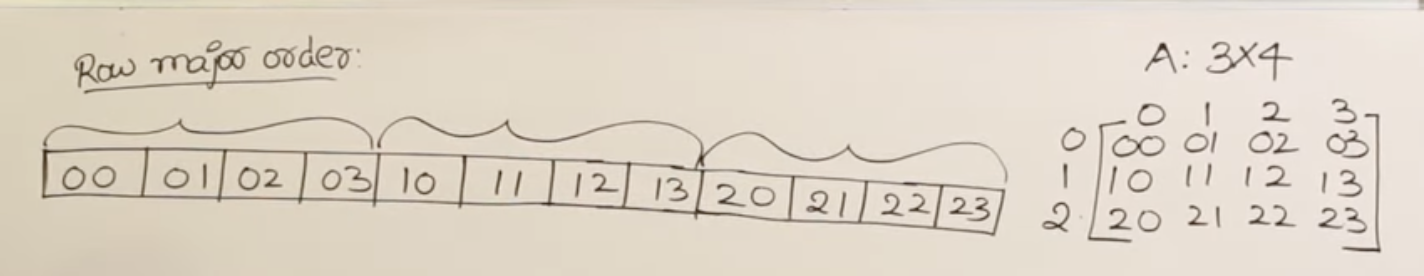 Row major order:
A: 3×4
00 01 02 03 10 11 12 13 20 21 22 23
0 1 2 3
0 00 01 02 03
1 10 11 12 13
2 20 21 22 23